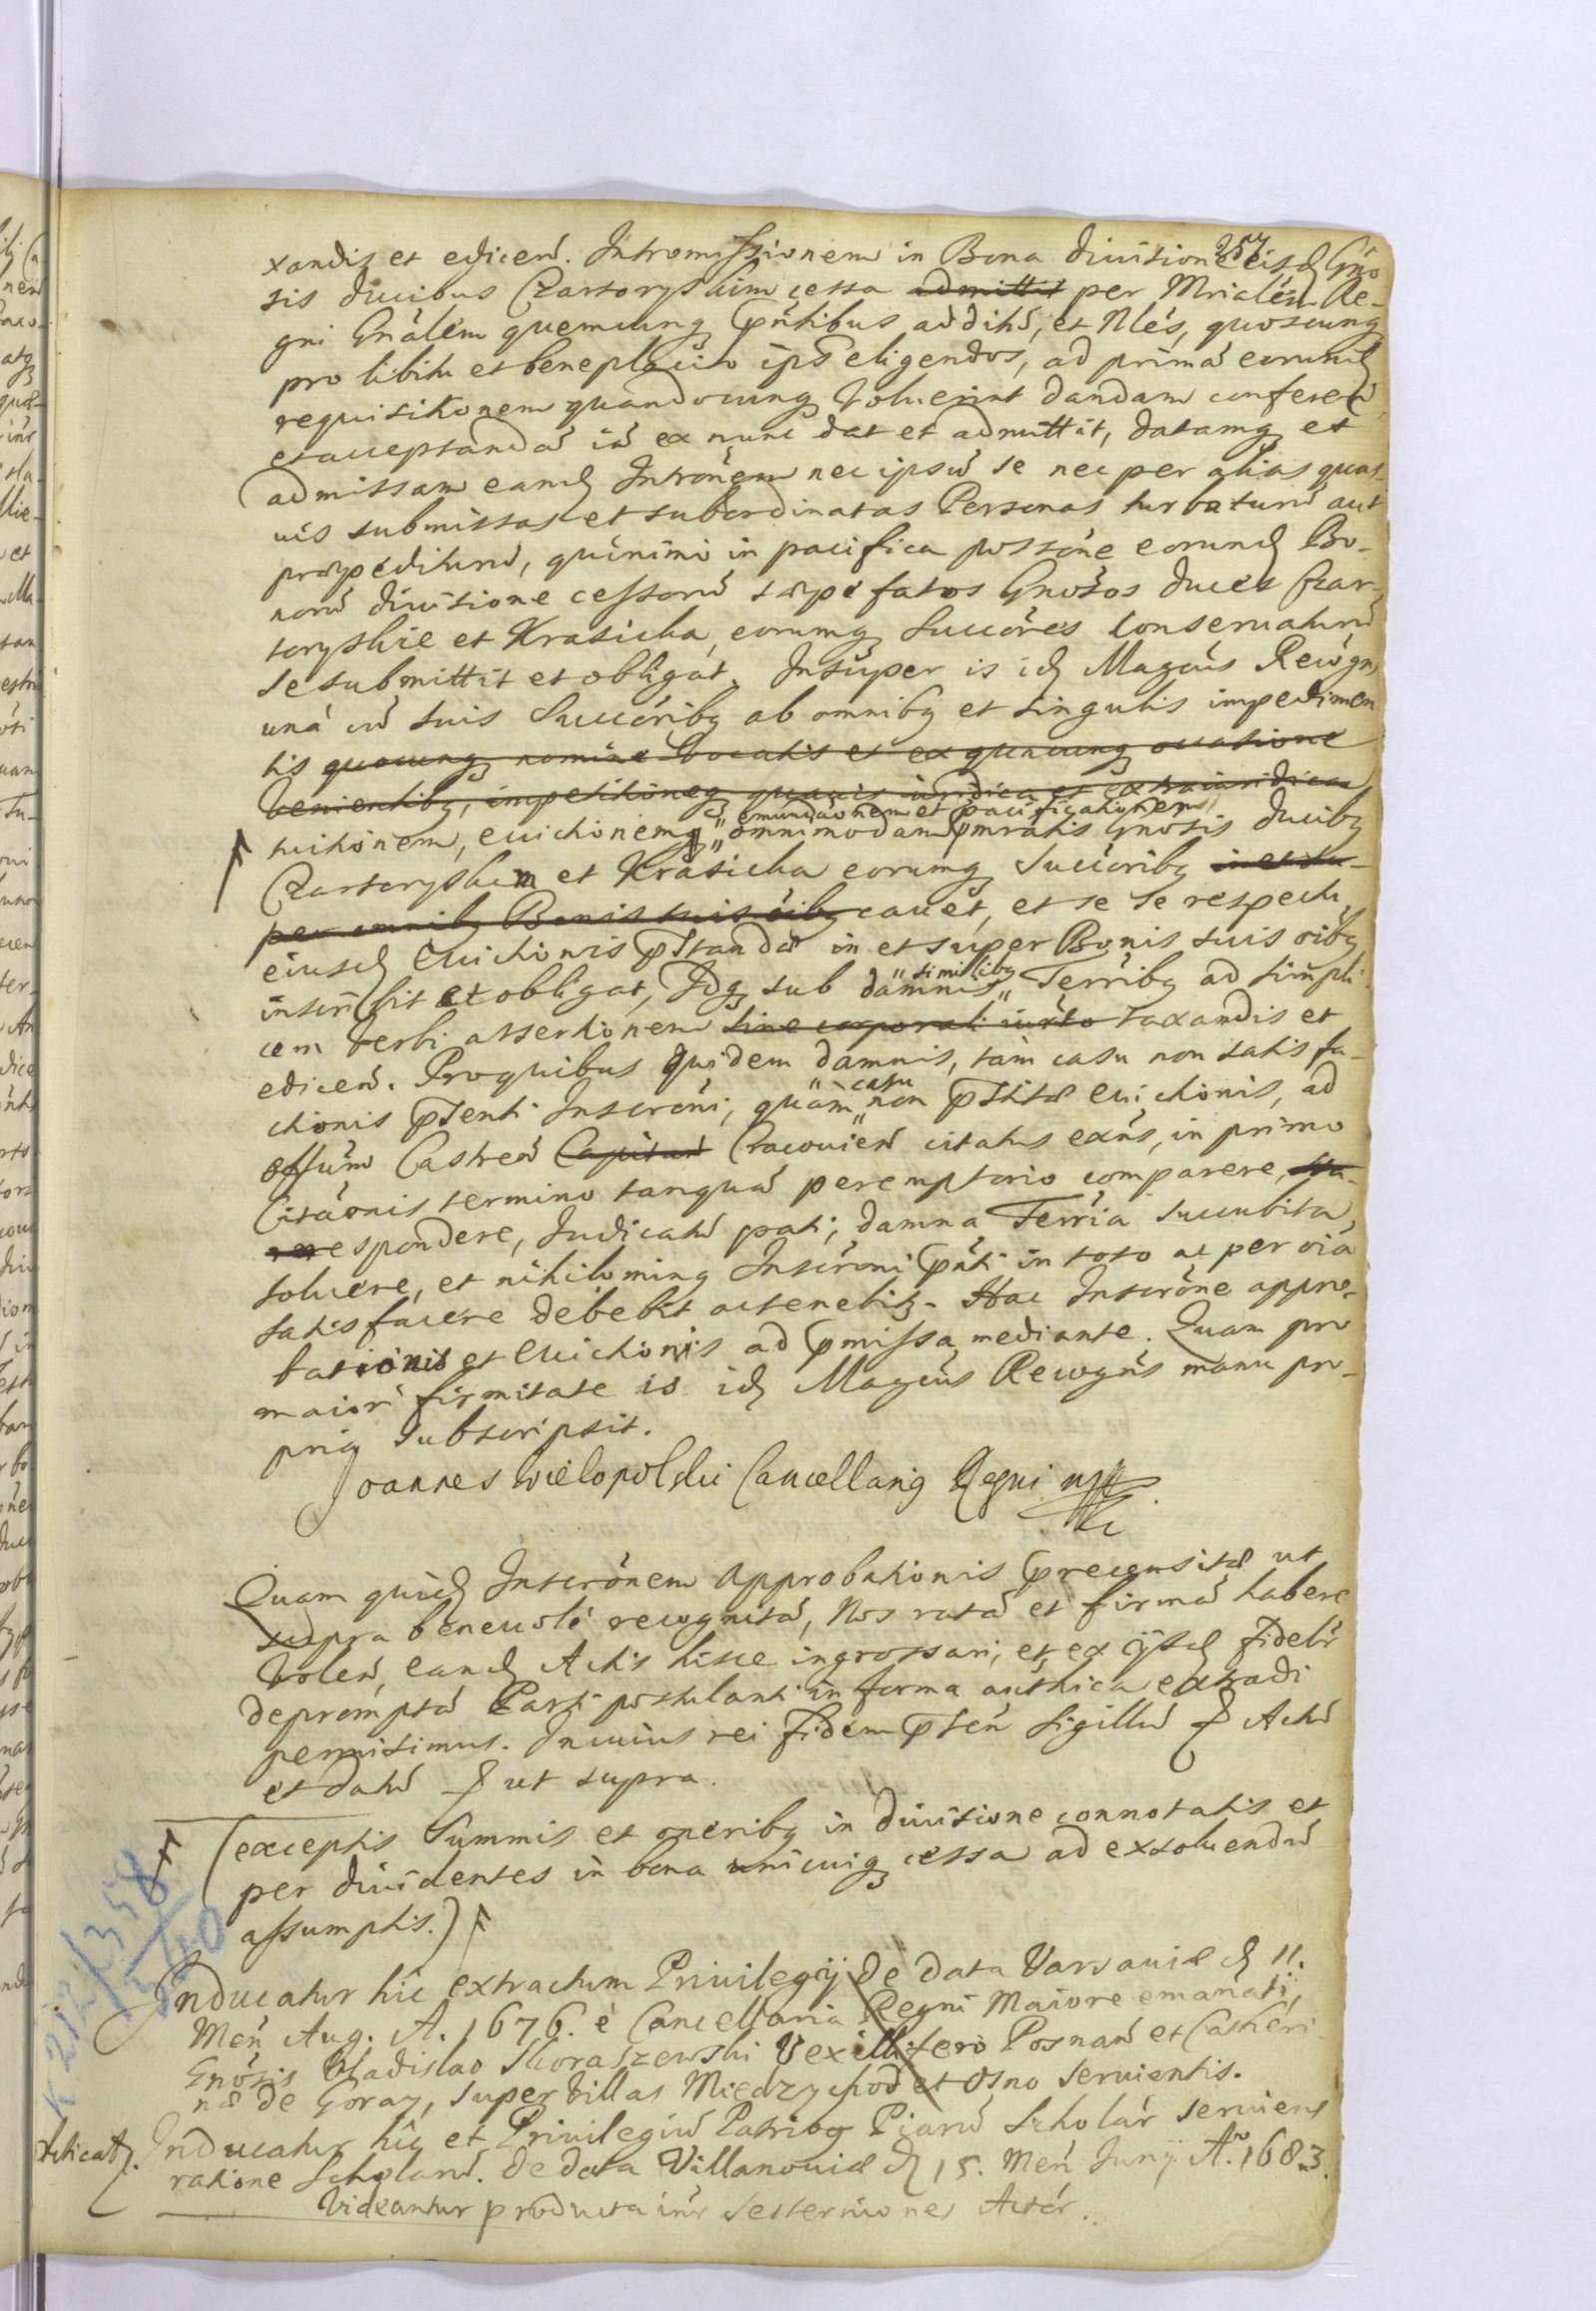 257
xandis et edicen. Intromissionem in Bona divisione eisd Gno
sis ducibus Czartoryskim cessa admittit per Mrialem Re-
gni Gnalem quemcunq pntibus additu, et Nles, quoscunq
pro libitu et beneplacito ips eligendos, ad prima eorund
requisitionem quandocunq voluerint dandam conferen
et acceptanda ia ex nunc dat et admittit, datamq et
admissam eand Intronem nec ipsu se nec per alias quas
vis submissas et subordinatas Personas turbaturu aut
præpediturũ, quinimo in pacifica possone eorund Bo-
noru divisione cessoru sæpe fatos Gnosos duces Czar-
toryskie et Krasicka, eorumq Succores conservaturu
se submittit et obligat. Insuper is id Magcus Recogn
una cu suis Succoribq ab omnibq et singulis impedimen
tis quocunq nomine vocatis et ex quacunq occasione
venientibq, impetitioneq quavis iuridica et extraiuridica
emundaonem et pacificationem
tuitionem, evictionemq omnimodam pmratis Gnosis ducibq
Czartoryskim et Krasicka eorumq Succoribq in et su-
per omnibq Bonis suis oibq cavet, et se se respectu
eiusd Evictionis pstandæ in et super Bonis suis oibq
inscribit et obligat, Idq sub damnis similibq Terribq ad simpli
cem verbi assertionem sine corporali iurto taxandis et
edicen. Pro quibus quidem damnis, tam casu non satisfa-
ctionis psenti Inscroni, quam casu non pstitæ evictionis, ad
offum Castren Capitan Cracovien citatus exns, in primo
Citaonis termino tanqua peremptorio comparere, sta-
re respondere, Iudicatu pati, damna Terria succubita,
soluere, et nihilominq Inscroni pnti in toto ac per oia
satisfacere debebit ac tenebitq. Hac Inscrone appro-
bationis et Evictionis ad pmissa mediante. Quam pro
maiori firmitate is id Magcus Recogns manu pro-
pria subscripsit.
Joannes Wielopolski Cancellariq Regni mp
Quam quid Inscronem Approbationis precensitæ ut
supra benevole recognita, Nos rata et firma habere
volen, eand Actis hisce ingrossari, et ex ijsd fidelr
deprompta Parti postulanti in forma authica extradi
permisimus. In cuius rei fidem psen Sigillu Actu
et datu ut supra.
(exceptis Summis et oneribq in divisione connotatis et
per dividentes in bona unicuiq cessa ad exsoluendu
assumptis.)
K 212/358
Inducatur hic extractum Privilegij de data Varsaviæ d 11.
Men Aug. A. 1676. è Cancellaria Regni Maiore emanati,
Gnosis Vladislao Skoraszewski Vexillifero Posnan et Catheri
næ de Goray, super villas Miedzychod et Osno servientis.
Inducatur hic et Privilegiu Patribq Piaru Scholar serviens
ratione Scholaru. de data Villanoviæ d 15. Men Junij A. 1683.
Videantur producta inr Sesterniones Actor.